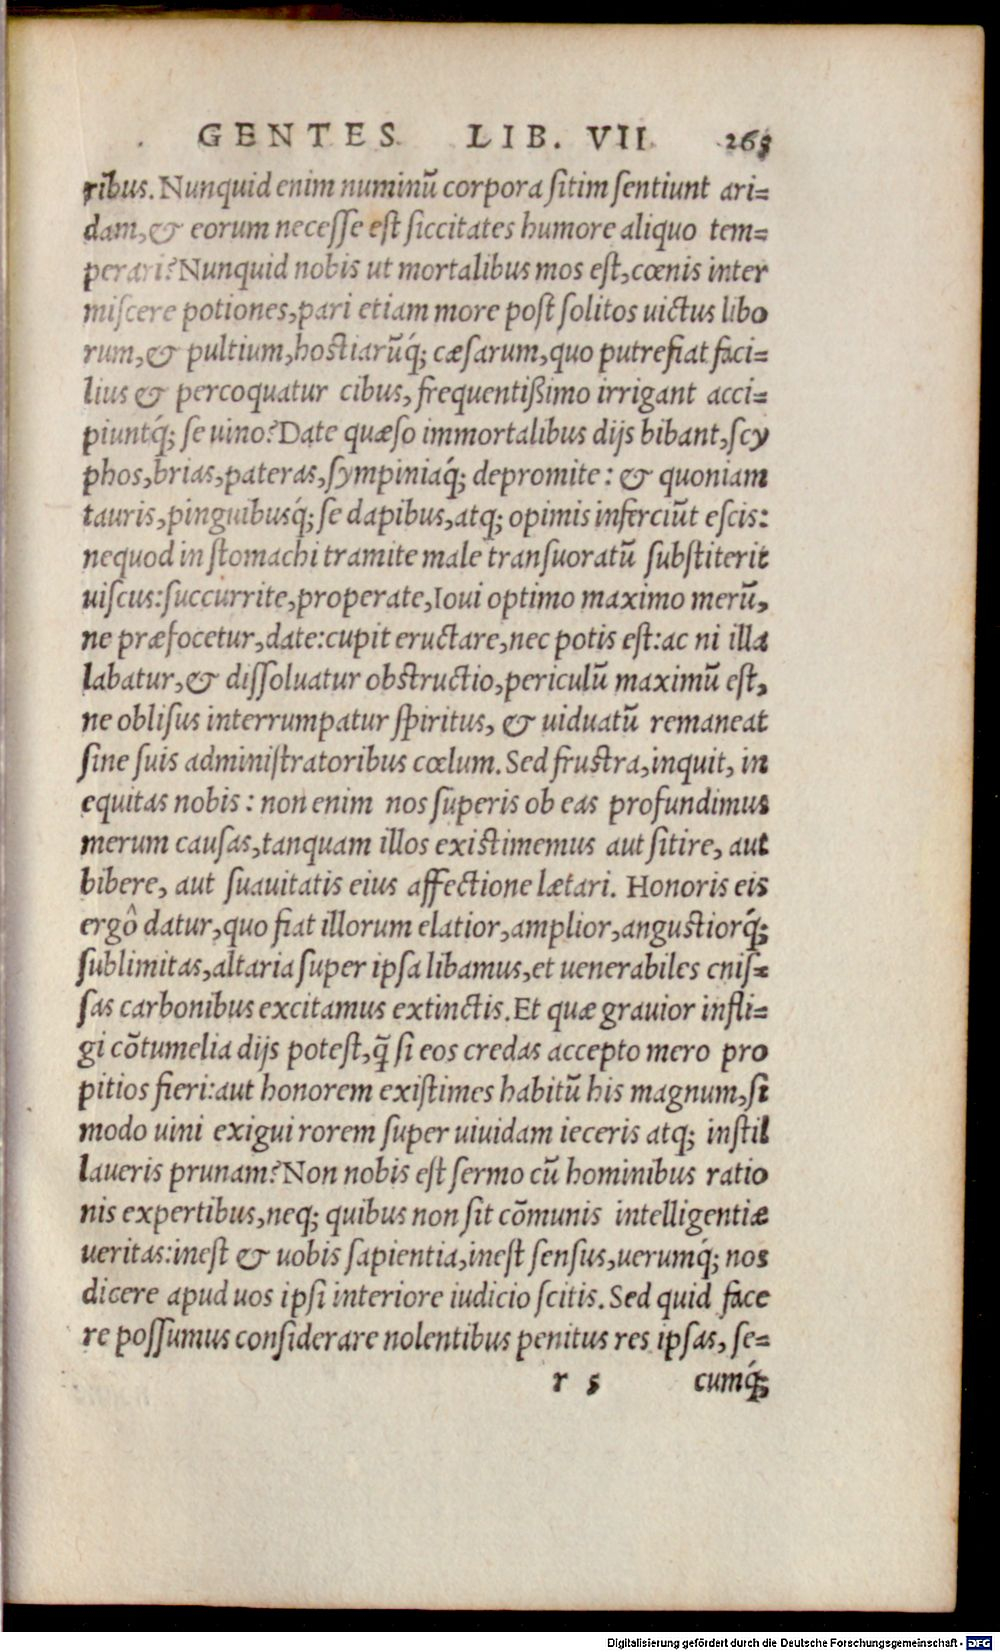 GENTES LIB. VII 265
ribus. Nunquid enim numinũ corpora ſitim ſentiunt ari=
dam, & eorum neceſſe eſt ſiccitates humore aliquo tem=
perari? Nunquid nobis ut mortalibus mos eſt, cœnis inter
miſcere potiones, pari etiam more poſt ſolitos uictus libo
rum, & pultium, hoſtiarũq́; cæſarum, quo putrefiat faci=
lius & percoquatur cibus, frequentißimo irrigant acci=
piuntq́; ſe uino? Date quæſo immortalibus dijs bibant, ſcy
phos, brias, pateras, ſympiniaq́; depromite: & quoniam
tauris, pinguibusq́; ſe dapibus, atq; opimis inferciũt eſcis:
nequod in ſtomachi tramite male tranſuoratũ ſubſtiterit
uiſcus: ſuccurrite, properate, Ioui optimo maximo merũ,
ne præfocetur, date: cupit eructare, nec potis eſt: ac ni illa
labatur, & diſſoluatur obſtructio, periculũ maximũ eſt,
ne obliſus interrumpatur ſpiritus, & uiduatũ remaneat
ſine ſuis adminiſtratoribus cœlum. Sed fruſtra, inquit, in
equitas nobis: non enim nos ſuperis ob eas profundimus
merum cauſas, tanquam illos exiſtimemus aut ſitire, aut
bibere, aut ſuauitatis eius affectione lætari. Honoris eis
ergô datur, quo fiat illorum elatior, amplior, anguſtiorq́;
ſublimitas, altaria ſuper ipſa libamus, et uenerabiles cniſ=
ſas carbonibus excitamus extinctis. Et quæ grauior infli=
gi cõtumelia dijs poteſt, q̃ ſi eos credas accepto mero pro
pitios fieri: aut honorem exiſtimes habitũ his magnum, ſi
modo uini exigui rorem ſuper uiuidam ieceris atq; inſtil
laueris prunam? Non nobis eſt ſermo cũ hominibus ratio
nis expertibus, neq; quibus non ſit cõmunis intelligentiæ
ueritas: ineſt & uobis ſapientia, ineſt ſenſus, uerumq́; nos
dicere apud uos ipſi interiore iudicio ſcitis. Sed quid face
re poſſumus conſiderare nolentibus penitus res ipſas, ſe=
r 5 cumq́;
Digitalisierung gefördert durch die Deutsche Forschungsgemeinschaft - DFG